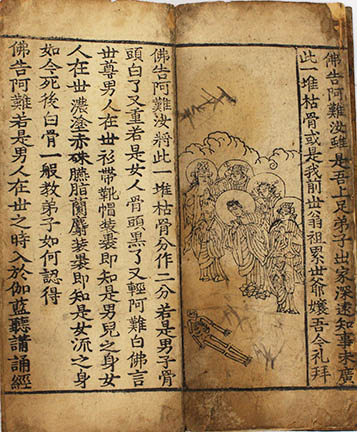 佛告阿難汝雖是吾上足弟子出家深遠知事未廣
此一堆枯骨或是我前世翁祖累世爺孃吾今礼拜
佛告阿難汝將此一堆枯骨分作二分若是男子骨
頭白了又重若是女人骨頭黑了又輕阿難白佛言
世尊男人在世衫帶靴帽裝裹即知是男兒之身女
人在世濃塗赤硃臙脂蘭麝裝裹即知是女流之身
如今死後白骨一般教弟子如何認得
佛告阿難若是男人在世之時入於伽藍聽講誦經